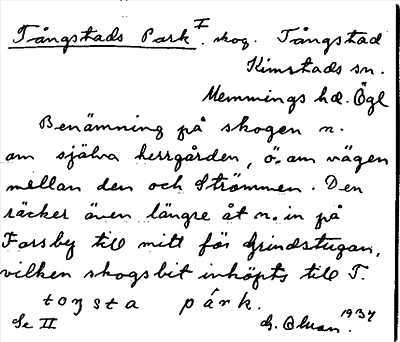 Tångstads Park I. skog. Tångstad
Kimstads sn.
Memmings hd. Ögl
Benämning på skogen n.
om själva herrgården, ö. om vägen
mellan den och Strömmen. Den
räcker även längre åt n. in på
Forsby till mitt för Grindstugan,
vilken skogsbit inköpts till T.
toŋsta pårk.
Se II
1937